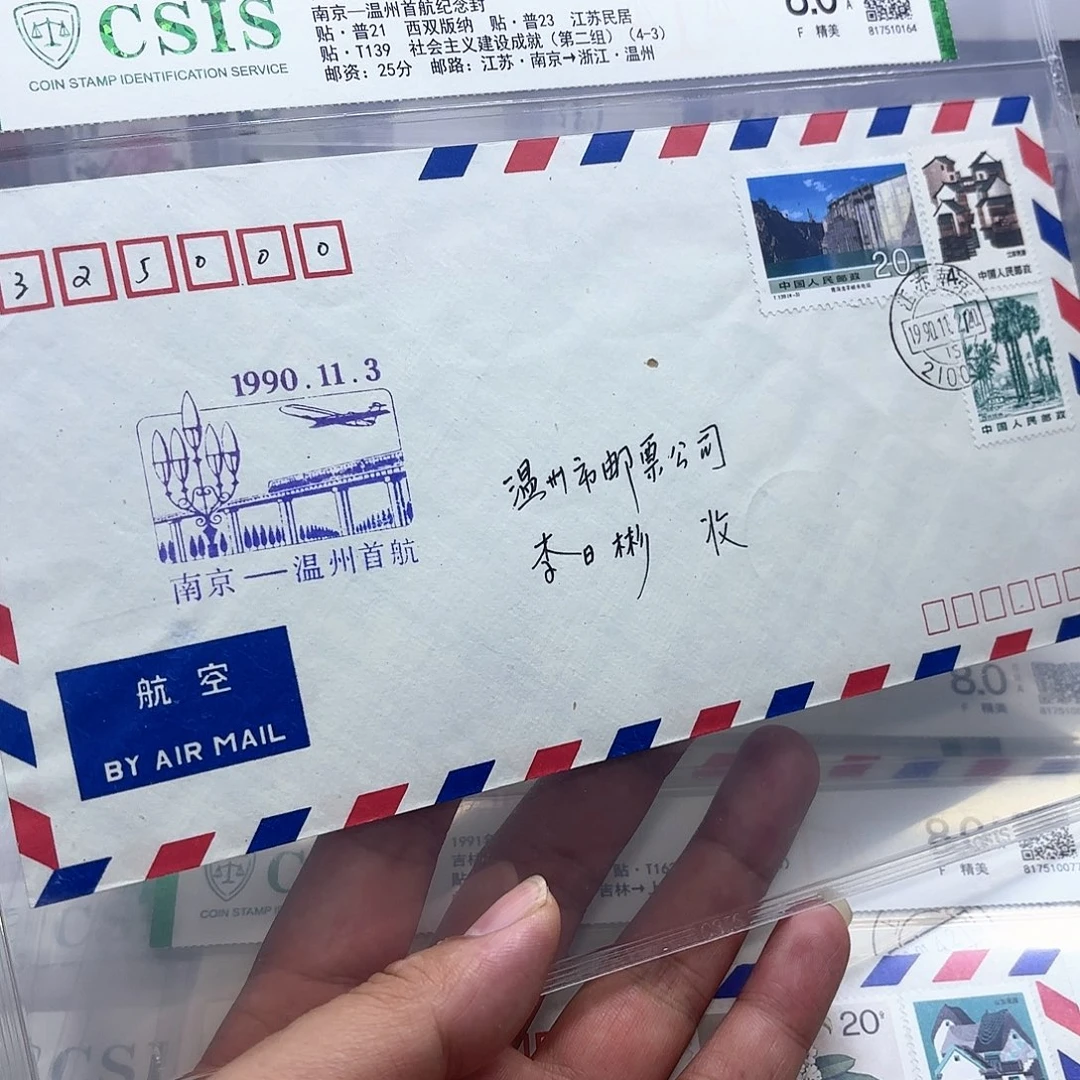 CSIS
COIN STAMP IDENTIFICATION SERVICE
南京—温州首航纪念封
贴·普21 西双版纳 贴·普23 江苏民居
贴·T139 社会主义建设成就（第二组）（4-3）
邮资：25分 邮路：江苏·南京→浙江·温州
8.0 A
F 精美
817510164
325000
20
中国人民邮政
4
中国人民邮政
中国人民邮政
江苏南京
1990.11.
15
2100
1990.11.3
南京—温州首航
温州市邮票公司
李日彬 收
航空
BY AIR MAIL
8.0
F 精美
1991
吉林
贴
贴·T16
吉林→上
C
COIN STAMP
8.0
F 精美
81751007
CSIS
20